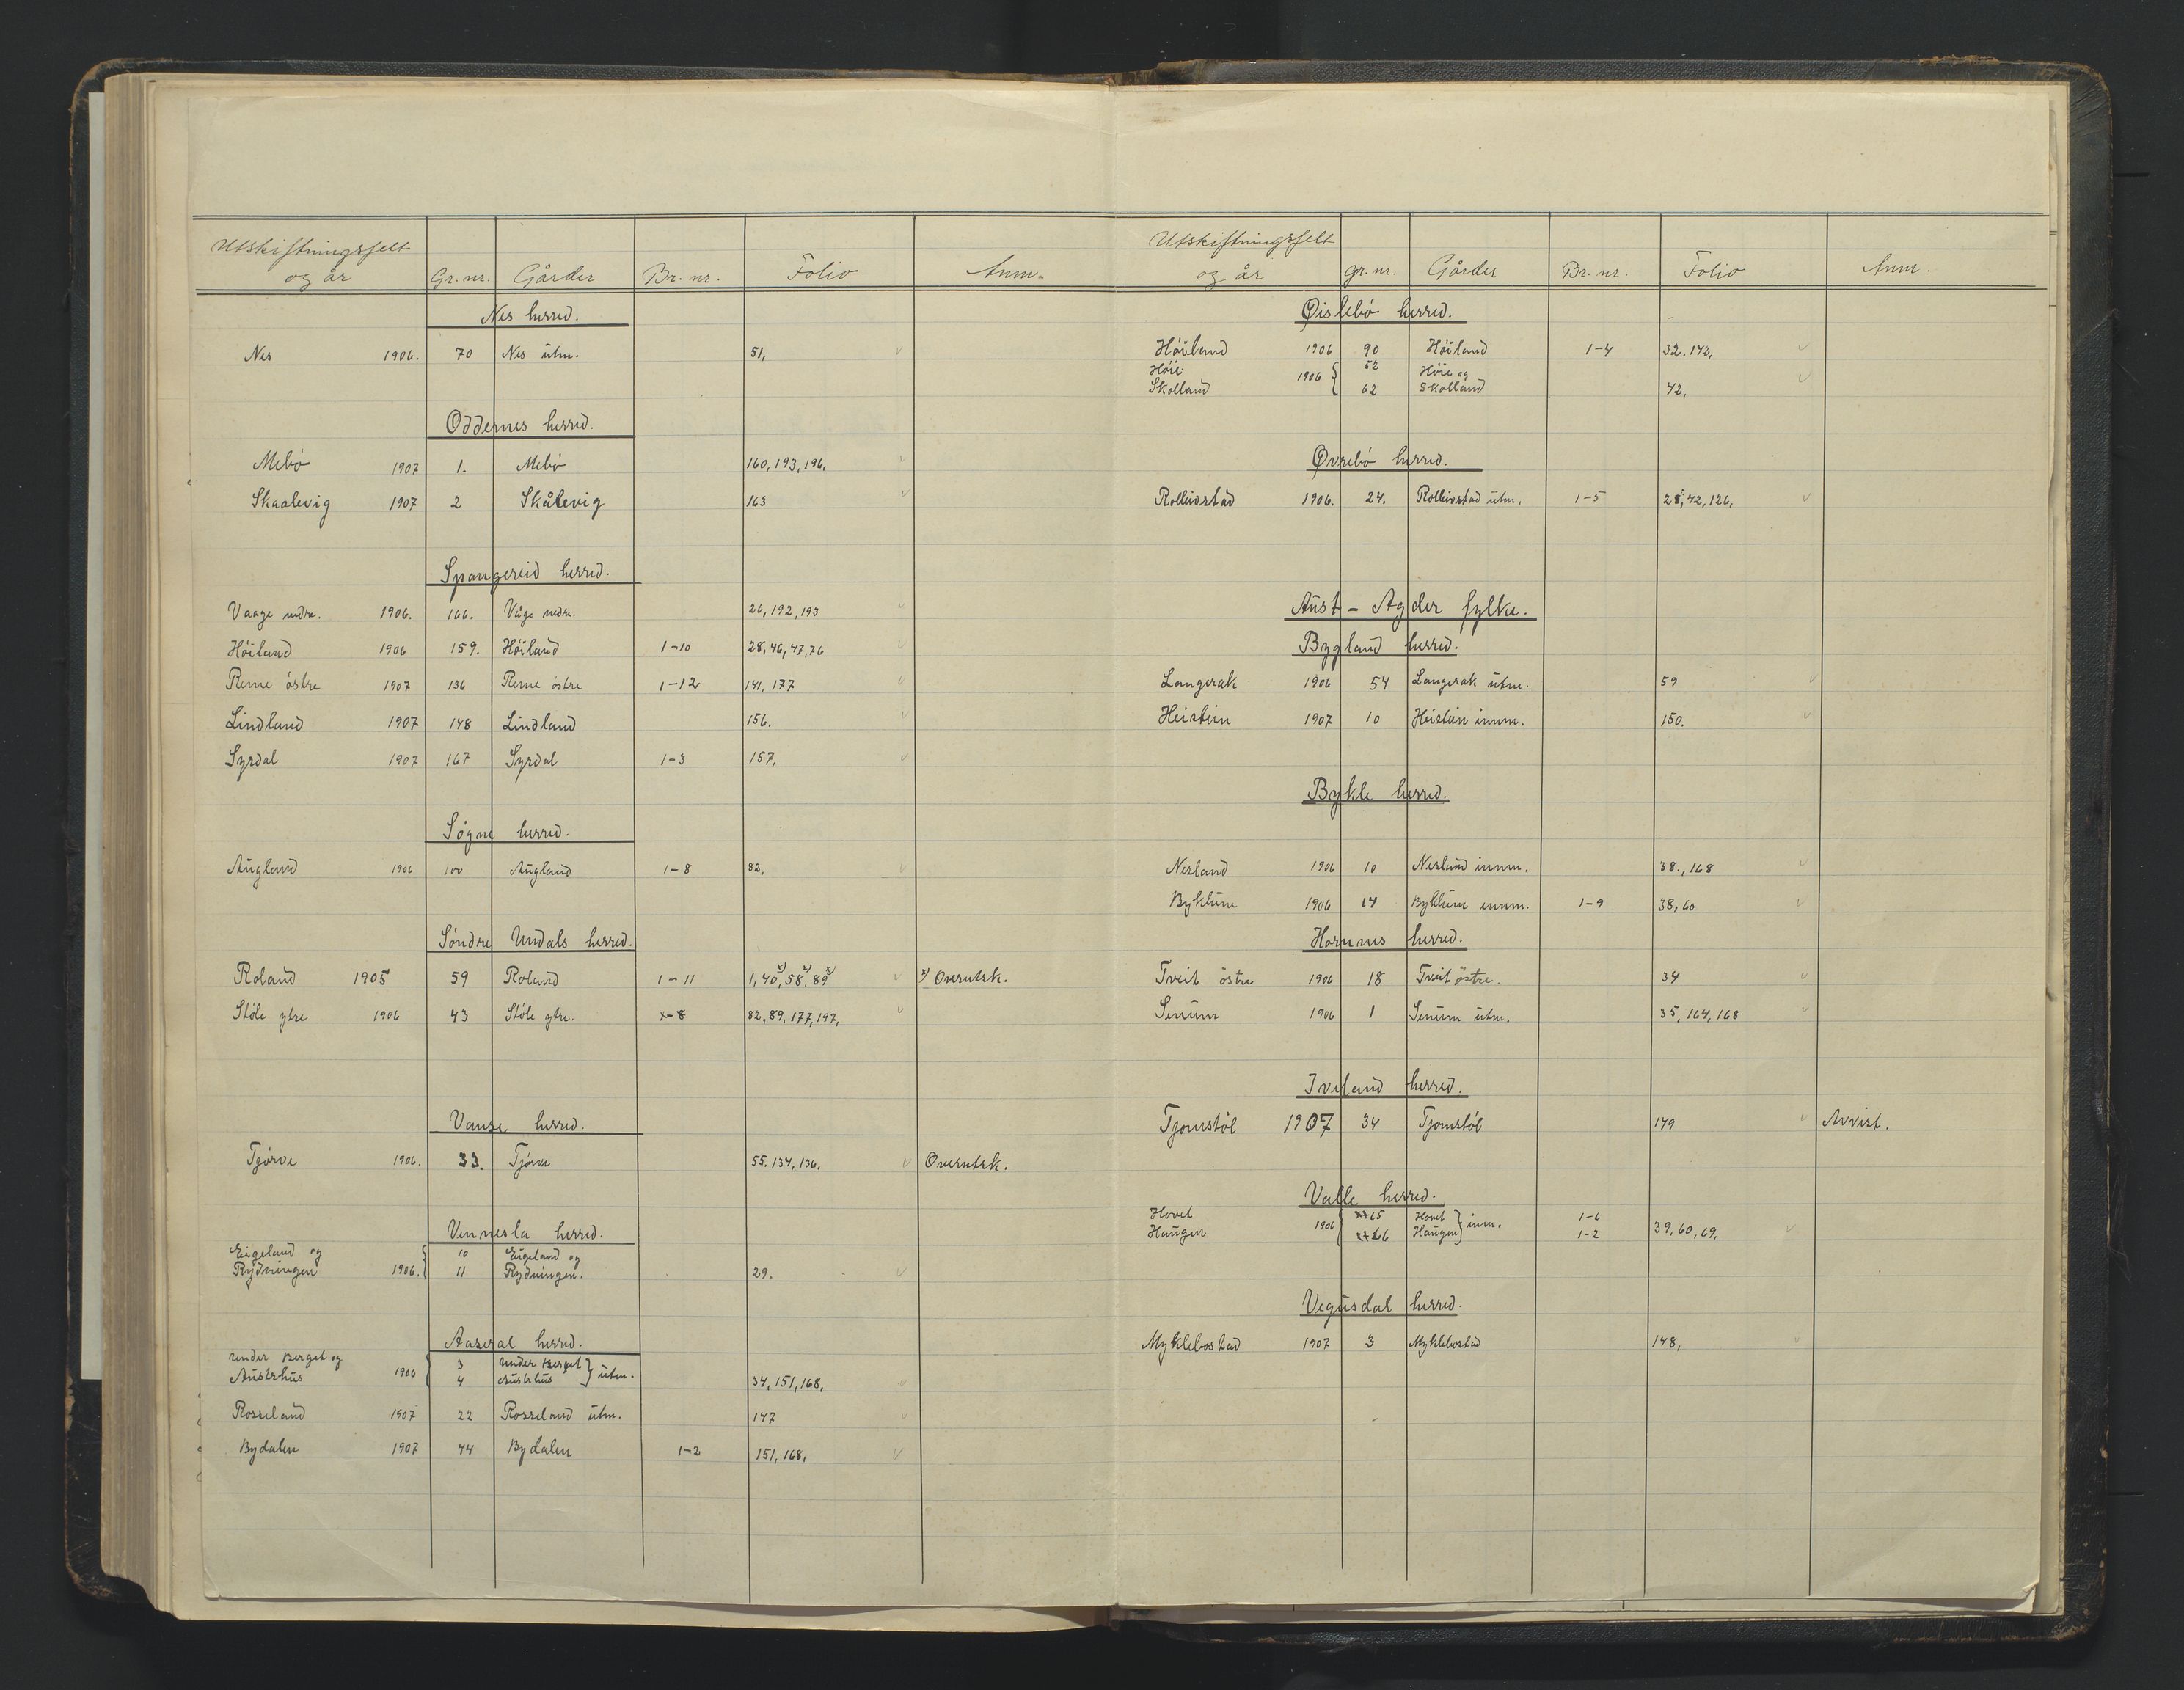 Utskiftningsfelt
og år Gr. nr. Gårder Br. nr. Folio Anm.
Nes herred.
Nes 1906. 70 Nes utm. 51,
Oddernes herred.
Mebö 1907 1. Mebö 160, 193, 196,
Skaalevig 1907 2 Skålevig 163
Spangereid herred.
Vaage nedre. 1906. 166. Våge nedre. 26, 192, 193
Höiland 1906 159. Höiland 1-10 28, 46, 47, 76
Reme östre 1907 136 Reme östre 1-12 141, 177
Lindland 1907 148 Lindland 156.
Syrdal 1907 167 Syrdal 1-3 157,
Sögne herred.
Augland 1906 100 Augland 1-8 82,
Söndre Undals herred.
Roland 1905 59 Roland 1-11 1, 40x), 58x), 89x) x) Overutsk.
Støle ytre 1906 43 Støle ytre. x-8 82, 89, 177, 197,
Vanse herred.
Tjörve 1906. 33. Tjörve 55. 134, 136. Overutsk.
Vennesla herred.
Eigeland og 10 Eigeland og
Rydningen 1906. 11 Rydningen. 29.
Aaseral herred.
under Berget og 3 under Berget
Austrhus 1906 4 Austrhus } utm. 34, 151, 168,
Rosseland 1907 22 Rosseland utm. 147
Bydalen 1907 44 Bydalen 1-2 151, 168,
Utskiftningsfelt
og år gr. nr. Gårder Br. nr. Folio Anm.
Øislebö herred.
Höiland 1906 90 Höiland 1-4 32. 142,
Höie 52 Höie og
Skolland 1906 62 Skolland 42,
Øvrebö herred.
Rolleivstad 1906. 24. Rolleivstad utm. 1-5 28, 42, 126,
Aust-Agder fylke.
Bygland herred.
Langerak 1906 54 Langerak utm. 59
Heistein 1907 10 Heistein innm. 150.
Bykle herred.
Nesland 1906 10 Nesland innm. 38., 168
Byklum 1906 14 Byklum innm. 1-9 38, 60
Hornnes herred.
Tveit östre 1906 18 Tveit östre. 34
Senum 1906 1 Senum utm. 35, 164, 168
Iveland herred.
Tjomstöl 1907 34 Tjomstöl 149 Avvist.
Valle herred.
Hovet 65 Hovet 1-6
Haugen 1906 66 Haugen } innm. 1-2 39, 60, 69,
Vegusdal herred.
Myklebostad 1907 3 Myklebostad 148,